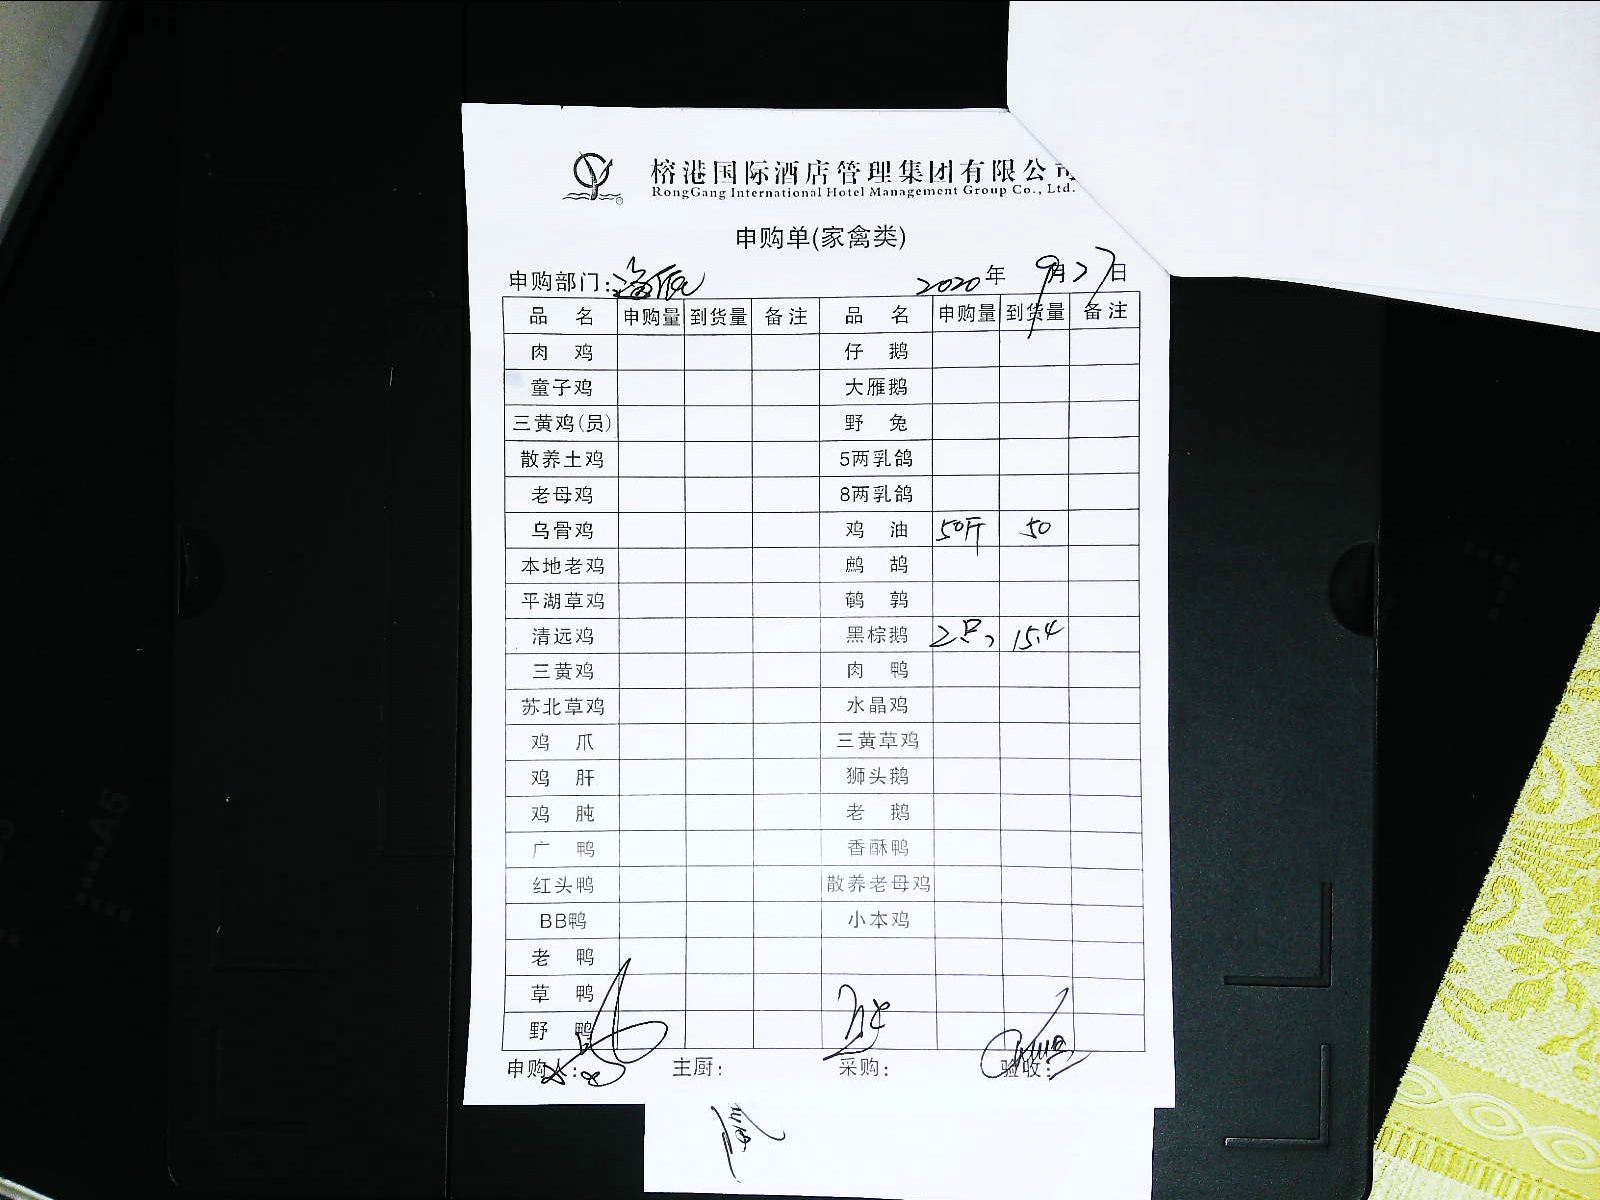 榕港国际酒店管理集团有限公司
RongGang International Hotel Management Group Co., Ltd.
申购单(家禽类)
申购部门: 2020年 9月27日
品 名 申购量 到货量 备注 品 名 申购量 到货量 备注
肉 鸡 仔 鹅
童子鸡 大雁鹅
三黄鸡(员) 野 兔
散养土鸡 5两乳鸽
老母鸡 8两乳鸽
乌骨鸡 鸡 油 50斤 50
本地老鸡 鹧 鸪
平湖草鸡 鹌 鹑
清远鸡 黑棕鹅 2只 15.4
三黄鸡 肉 鸭
苏北草鸡 水晶鸡
鸡 爪 三黄草鸡
鸡 肝 狮头鹅
鸡 肫 老 鹅
广 鸭 香酥鸭
红头鸭 散养老母鸡
BB鸭 小本鸡
老 鸭
草 鸭
野 鸭
申购人: 主厨: 采购: 验收: